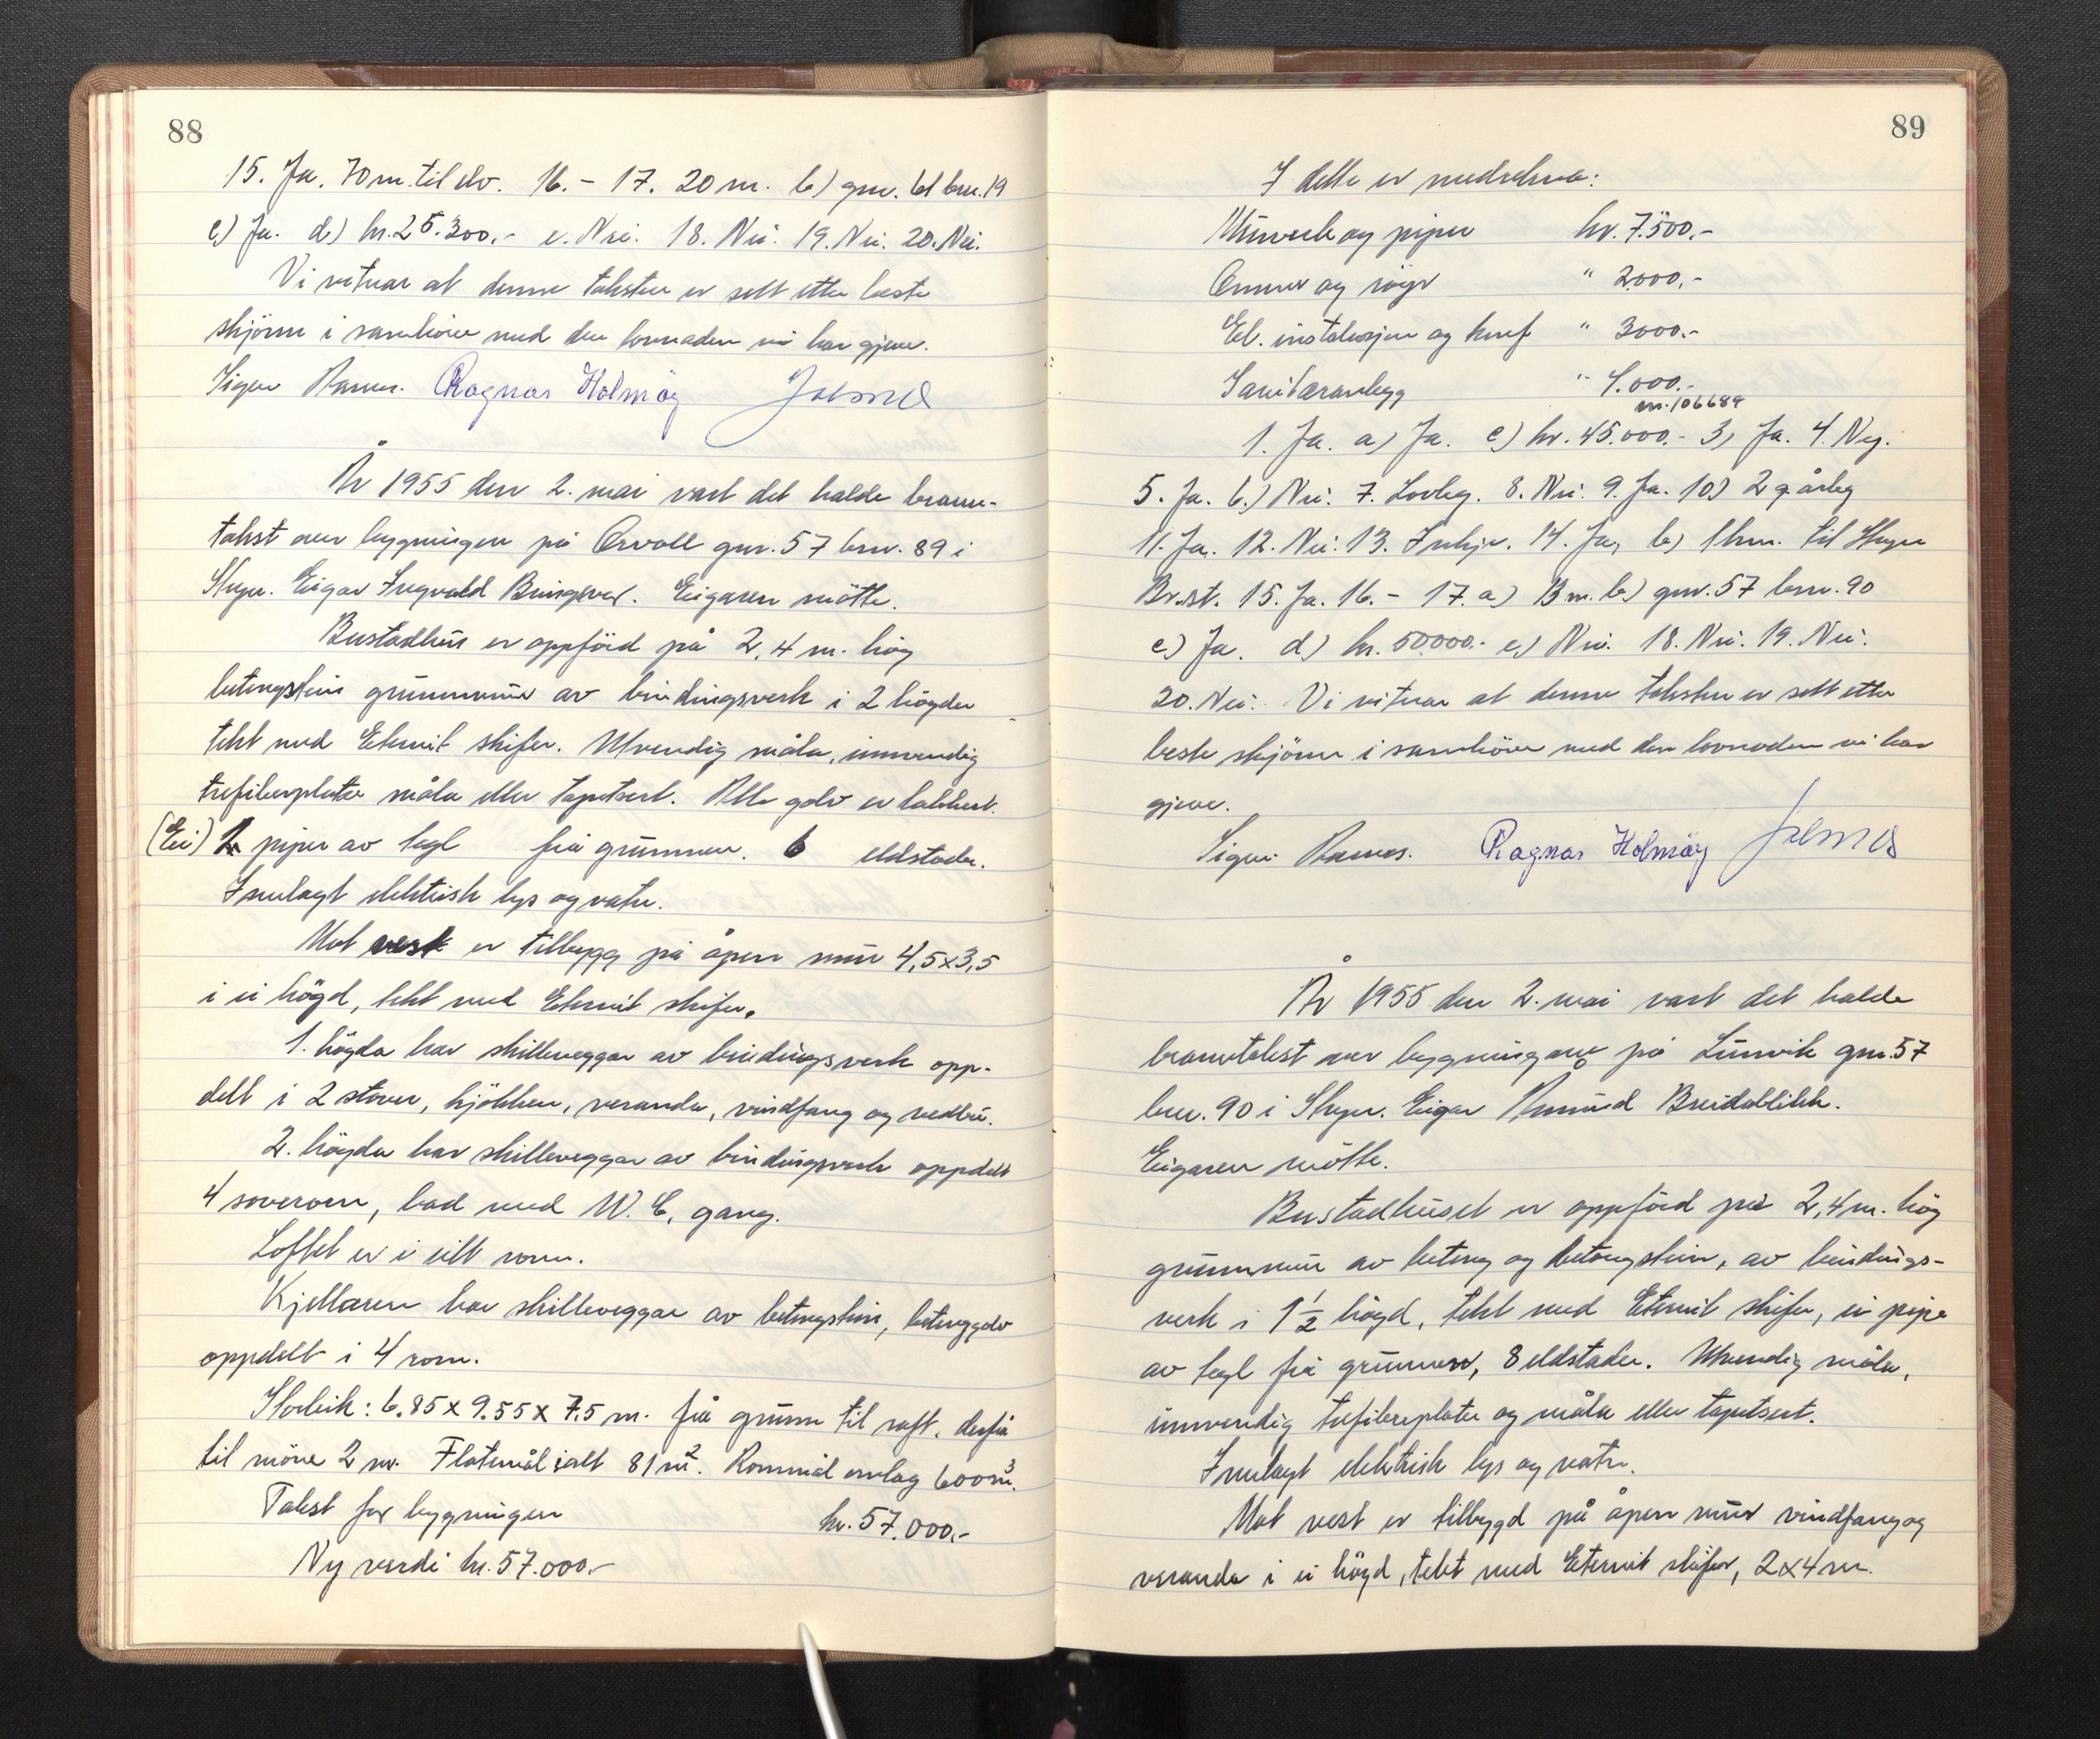 88
15. Ja. 70 m. til elv. 16. - 17. 20 m. b) gnr. 61 bnr. 19
c) Ja. d) kr. 25.300.- e. Nei. 18. Nei. 19. Nei. 20. Nei.
Vi vitnar at denne taksten er sett etter beste
skjönn i samhöve med den lovnaden vi har gjeve.
Ragnar Holmöy
År 1955 den 2. mai vart det halde brann-
takst over bygningen på Orvoll gnr. 57 bnr. 89 i
Stryn. Eigar Eigaren mötte.
Bustadhus er oppförd på 2,4 m. hög
betongstein grunnmur av bindingsverk i 2 högder
tekt med Eternit skifer. Utvendig måla, innvendig
trefiberplater måla eller tapetsert. Alle golv er lakkert.
(Ei) piper av tegl frå grunnen. 6 eldstader.
Innlagt elektrisk lys og vatn.
Mot vest er tilbygg på åpen mur 4,5x3,5
i ei högd, tekt med Eternit skifer.
1. högda har skilleveggar av bindingsverk opp-
delt i 2 stover, kjökken, veranda, vindfang og vedbu.
2. högda har skilleveggar av bindingsverk oppdelt
4 soverom, bad med W. C, gang.
Loftet er i eitt rom.
Kjellaren har skilleveggar av betongstein, betonggolv
oppdelt i 4 rom.
Storleik: 6.85 x 9.55 x 7.5 m. frå grunn til raft, derfrå
til möne 2 m. Flatemål ialt 81 m². Rommål omlag 600 m³.
Takst for bygningen kr. 57.000.-
Ny verdi kr. 57.000.-
89
I dette er medrekna:
Murverk og piper kr. 7.500.-
Omner og " 2000.-
El. instalasjon og " 3000.-
Sanitæranlegg " 4.000.-
m. 106689
1. Ja. a) Ja. c) kr. 45.000.- 3, Ja. 4. Ny.
5. Ja. 6.) Nei. 7. Lovleg. 8. Nei. 9. Ja. 10) 2 g. årleg
11. Ja. 12. Nei. 13. Innhjo. 14. Ja, b) 1 km. til Stryn
Br.st. 15. Ja. 16. - 17. a) 13 m. b) gnr. 57 bnr. 90
c) Ja. d) kr. 50.000.- e) Nei. 18. Nei. 19. Nei.
20. Nei. Vi vitnar at denne taksten er sett etter
beste skjönn i samhöve med den lovnaden vi har
gjeve.
Ragnar Holmöy
År 1955 den 2. mai vart det halde
branntakst over bygningane på Lunvik gnr. 57
bnr. 90 i Stryn. Eigar Amund Breidablikk.
Eigaren mötte.
Bustadhuset er oppförd på 2,4 m. hög
grunnmur av betong og betongstein, av bindings-
verk i 1½ högd, tekt med Eternit skifer, ei pipe
av tegl frå grunnen, 8 eldstader. Utvendig måla,
innvendig trefiberplater og måla eller tapetsert.
Innlagt elektrisk lys og vatn.
Mot vest er tilbygd på åpen mur vindfang og
veranda i ei högd, tekt med Eternit skifer, 2x4 m.